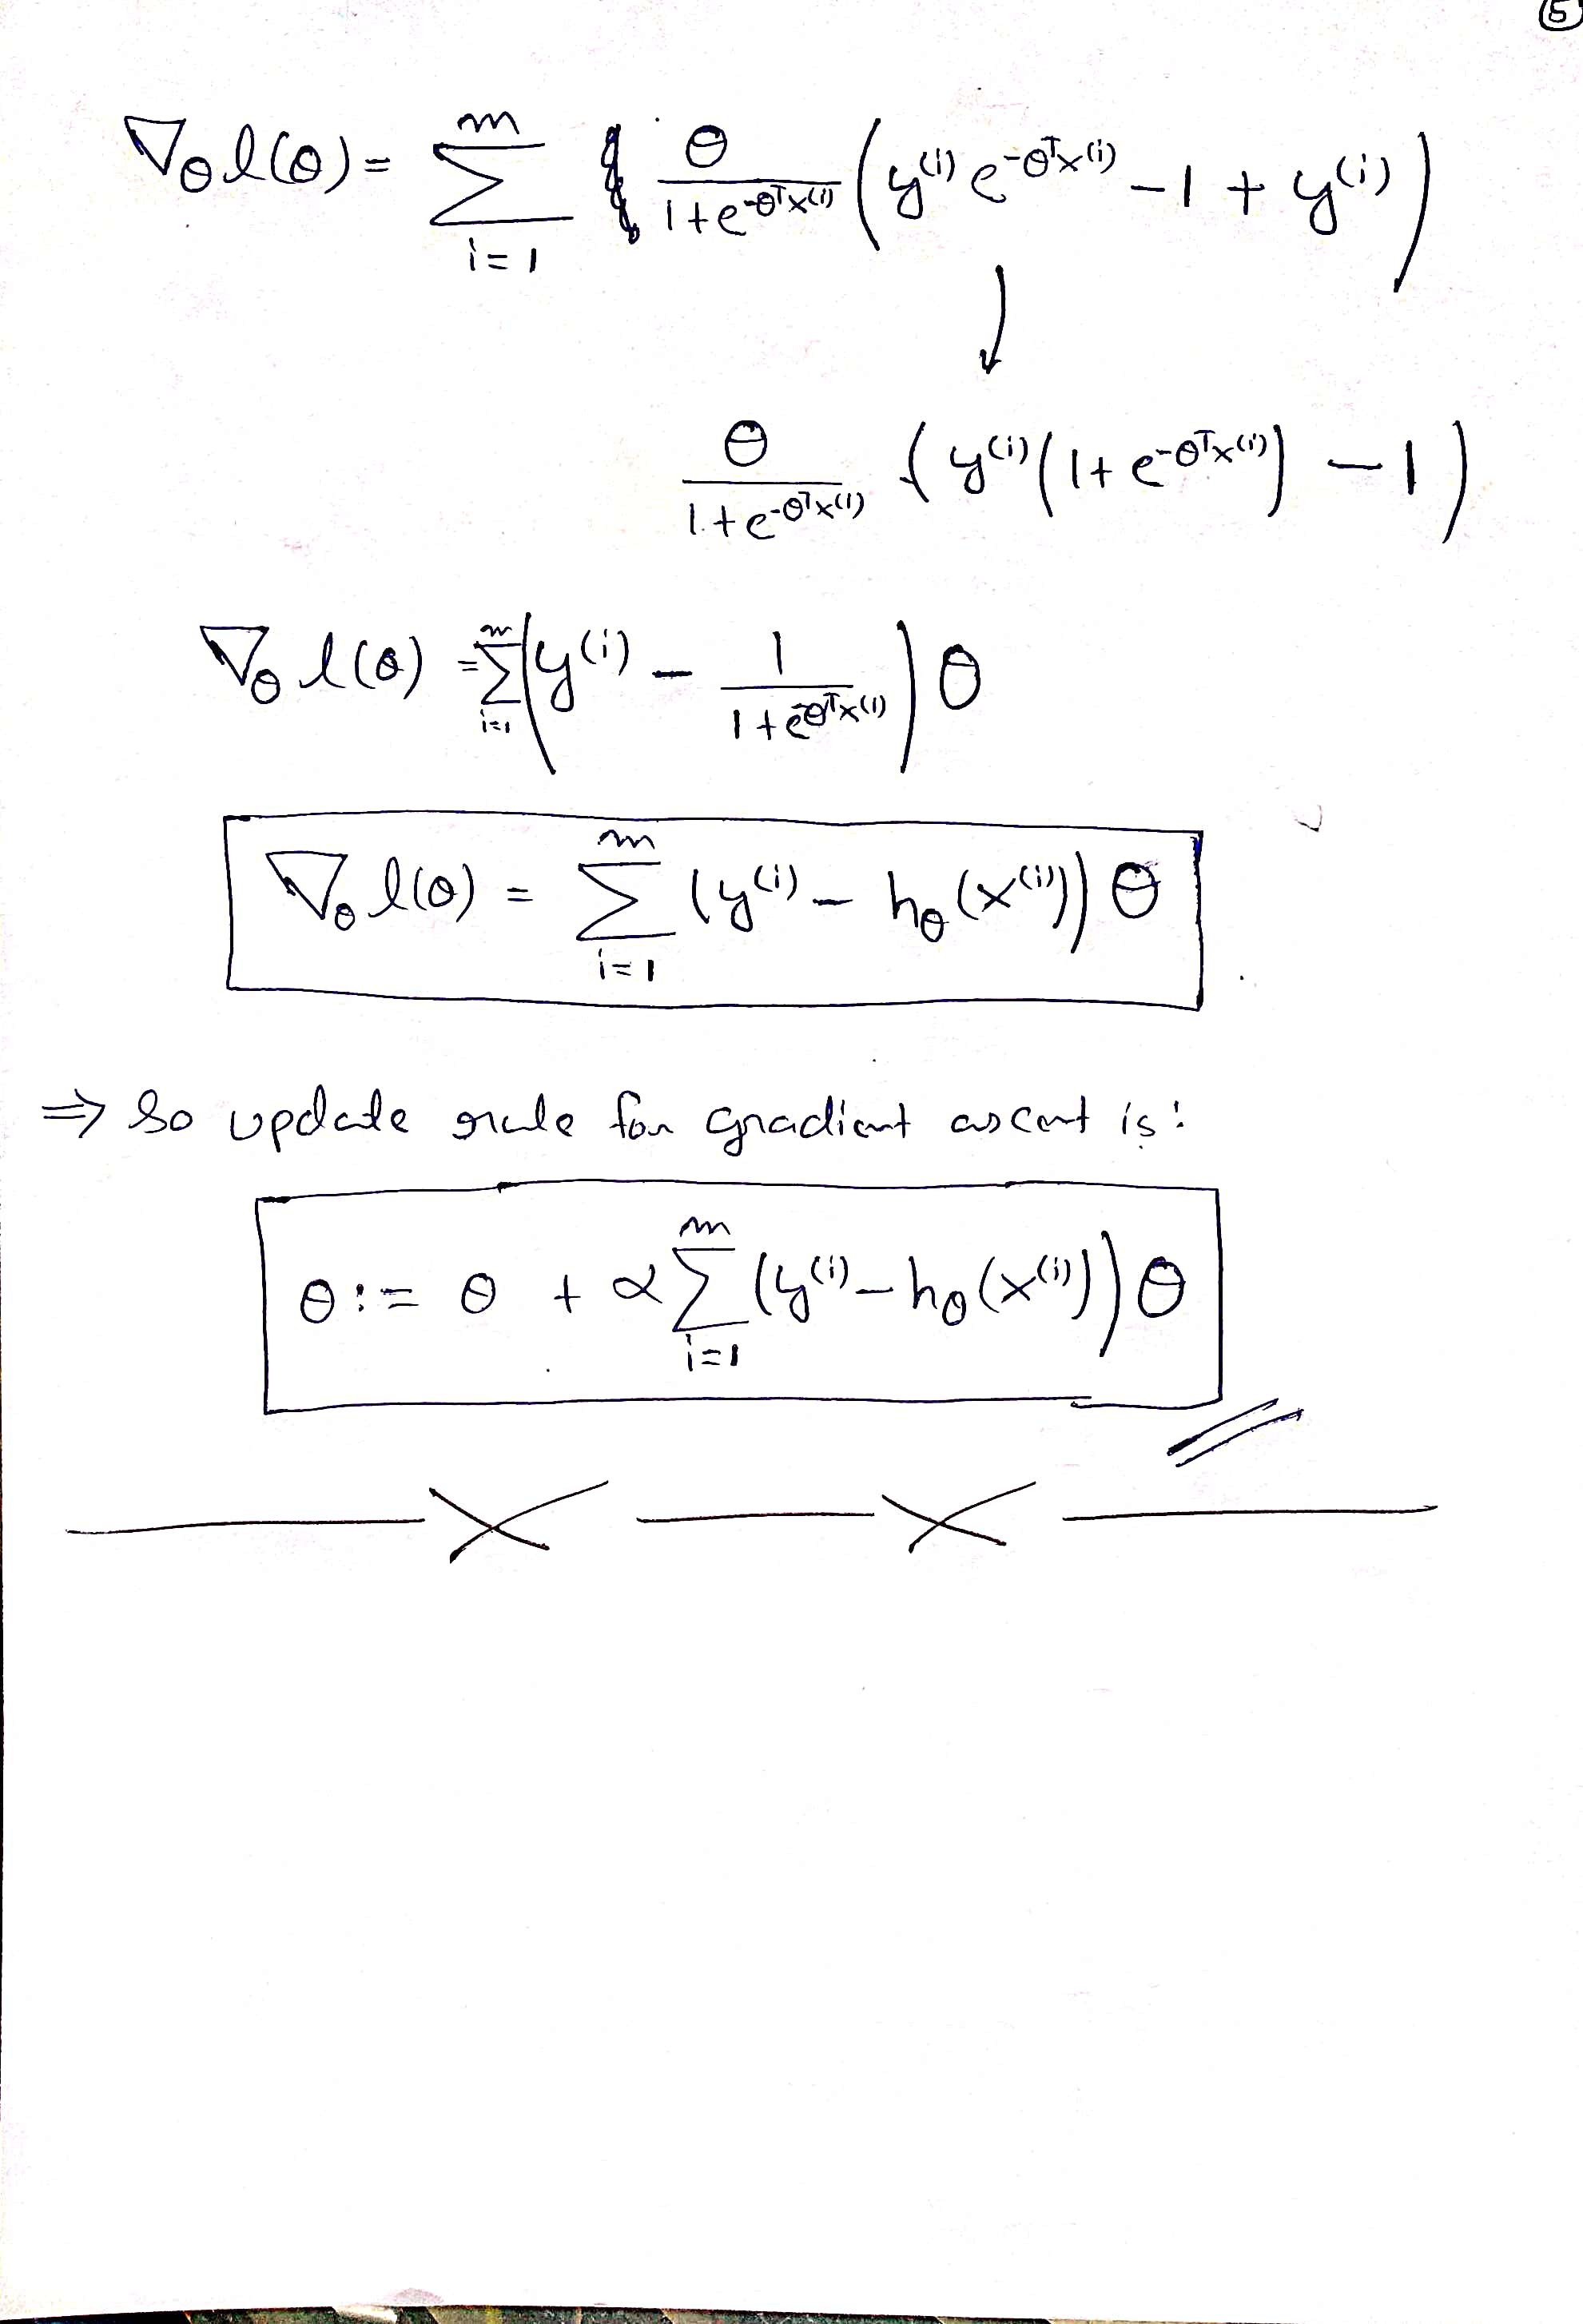 5
∇_θ l(θ) = Σ_{i=1}^{m} θ/(1+e^{-θ^T x^{(i)}}) (y^{(i)} e^{-θ^T x^{(i)}} - 1 + y^{(i)})
↓
θ/(1+e^{-θ^T x^{(i)}}) (y^{(i)}(1+e^{-θ^T x^{(i)}}) - 1)
∇_θ l(θ) = Σ_{i=1}^{m} (y^{(i)} - 1/(1+e^{-θ^T x^{(i)}})) θ
∇_θ l(θ) = Σ_{i=1}^{m} (y^{(i)} - h_θ(x^{(i)})) θ
⇒ So update rule for gradient ascent is:
θ := θ + α Σ_{i=1}^{m} (y^{(i)} - h_θ(x^{(i)})) θ